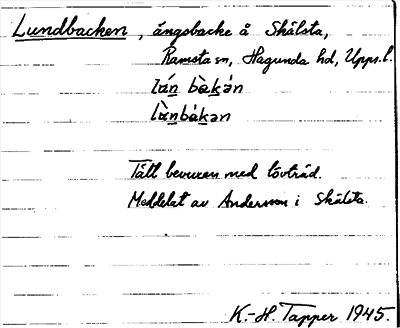 Lundbacken, ängsbacke å Skälsta,
Ramsta sn, Hagunda hd, Upps. l.
bakan
Tätt bevuxen med lövträd.
Meddelat av Andersson i Skälsta.
K.-H. Tapper 1945.